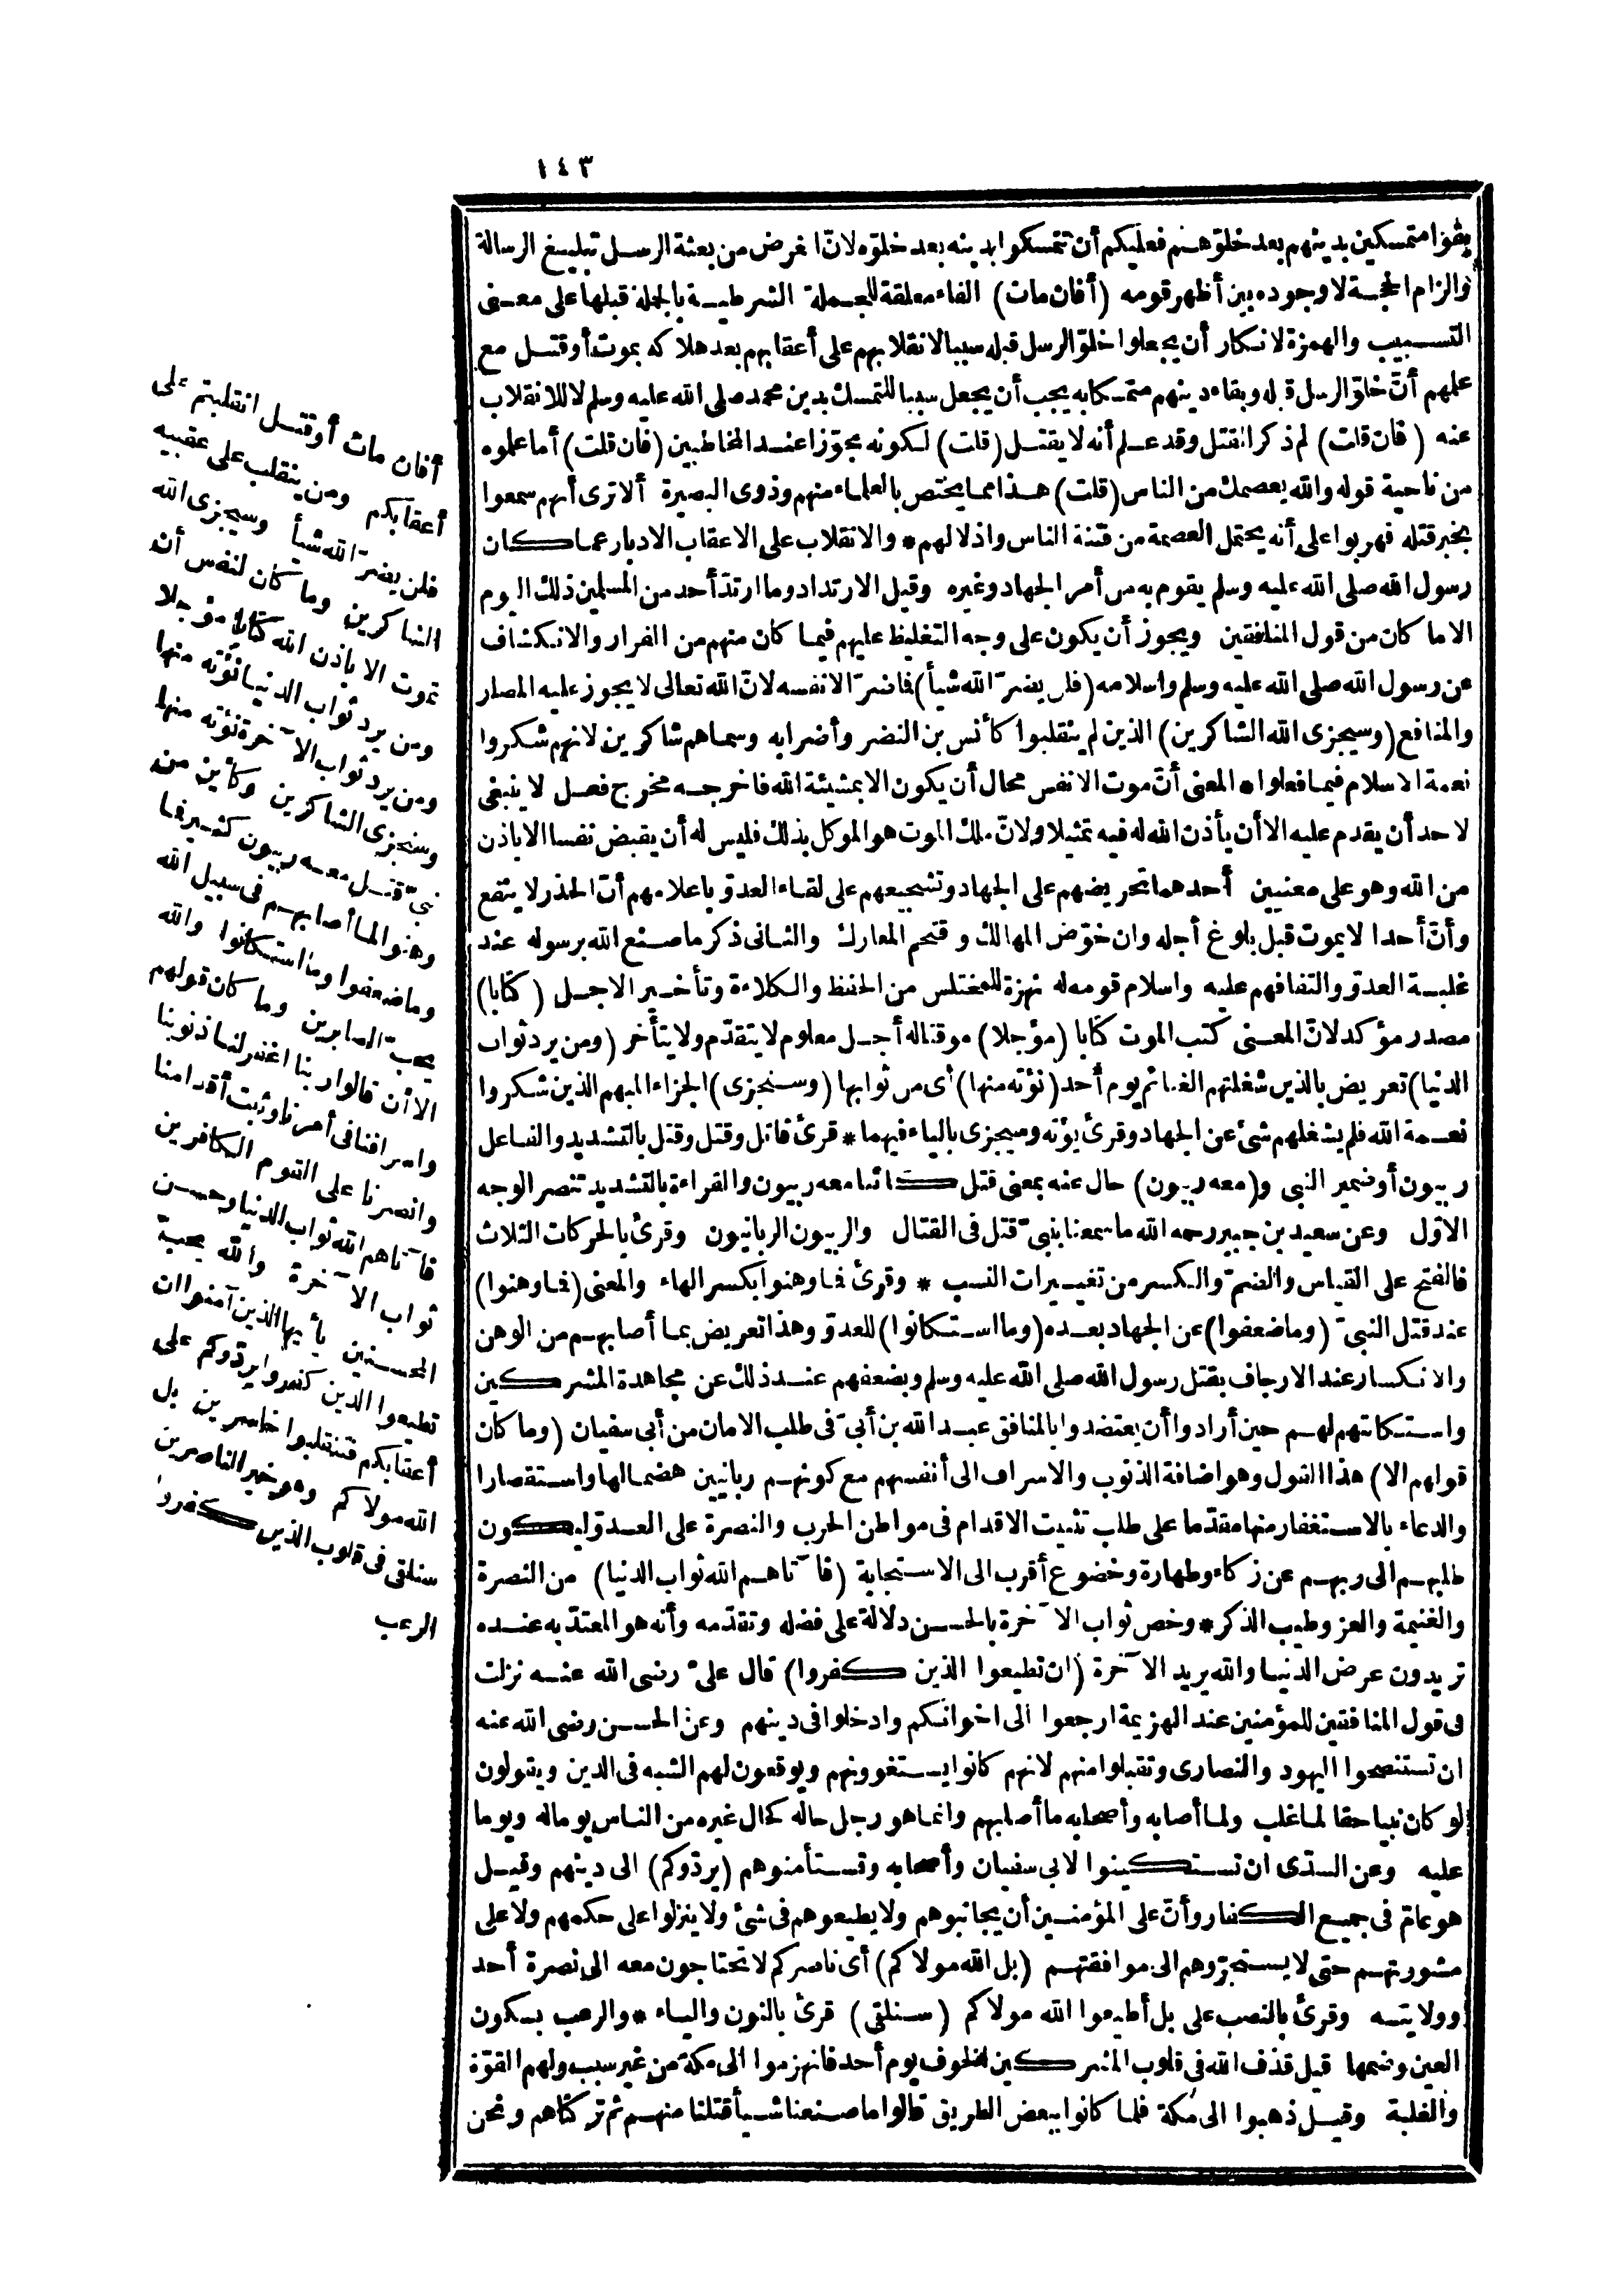 ١٤٣
بقوا متمسكين بدينهم بعد خلوّهم فعليكم أن تتمسكوا بدينه بعد خلوّه لانّ الغرض من بعثة الرسل تبليغ الرسالة
والزام الحجة لا وجوده بين أظهر قومه (أفان مات) الفاء معلقة للجملة الشرطية بالجملة قبلها على معنى
التسبيب والهمزة لانكار أن يجعلوا خلوّ الرسل قبله سببا لانقلابهم على أعقابهم بعد هلاكه بموت أو قتل مع
علمهم أنّ خلوّ الرسل قبله وبقاء دينهم متمسكا به يجب أن يجعل سببا للتمسك بدين محمد صلى الله عليه وسلم لا للانقلاب
عنه (فان قلت) لم ذكر القتل وقد علم أنه لا يقتل (قلت) لكونه مجوّزا عند المخاطبين (فان قلت) أما علموه
من ناحية قوله والله يعصمك من الناس (قلت) هذا مما يختص بالعلماء منهم وذوى البصيرة ألا ترى أنهم سمعوا
بخبر قتله فهربوا على أنه يحتمل العصمة من فتنة الناس واذلالهم * والانقلاب على الاعقاب الادبار عما كان
رسول الله صلى الله عليه وسلم يقوم به من أمر الجهاد وغيره وقيل الارتداد وما ارتدّ أحد من المسلمين ذلك اليوم
الا ما كان من قول المنافقين ويجوز أن يكون على وجه التغليظ عليهم فيما كان منهم من الفرار والانكشاف
عن رسول الله صلى الله عليه وسلم واسلامه (فلن يضرّ الله شيأ) فما ضرّ الا نفسه لانّ الله تعالى لا يجوز عليه المضار
والمنافع (وسيجزى الله الشاكرين) الذين لم ينقلبوا كأنس بن النضر وأضرابه وسماهم شاكرين لانهم شكروا
نعمة الاسلام فيما فعلوا * المعنى أنّ موت الانفس محال أن يكون الا بمشيئة الله فاخرجه مخرج فعل لا ينبغى
لاحد أن يقدم عليه الا أن يأذن الله له فيه تمثيلا ولانّ ملك الموت هو الموكل بذلك فليس له أن يقبض نفسا الا باذن
من الله وهو على معنيين أحدهما تحريضهم على الجهاد وتشجيعهم على لقاء العدوّ باعلامهم أنّ الحذر لا ينفع
وأنّ أحدا لا يموت قبل بلوغ أجله وان خوّض المهالك واقتحم المعارك والثانى ذكر ما صنع الله برسوله عند
غلبة العدوّ والتفافهم عليه واسلام قومه له نهزة للمختلس من الحفظ والكلاءة وتأخير الاجل (كتابا)
مصدر مؤكد لانّ المعنى كتب الموت كتابا (مؤجلا) موقتا له أجل معلوم لا يتقدّم ولا يتأخر (ومن يرد ثواب
الدنيا) تعريض بالذين شغلتهم الغنائم يوم أحد (نؤته منها) أى من ثوابها (وسنجزى) الجزاء المبهم الذين شكروا
نعمة الله فلم يشغلهم شئ عن الجهاد وقرئ يؤته وسيجزى بالياء فيهما * قرئ قاتل وقتل وقتل بالتشديد والفاعل
ربيون أو ضمير النبى و(معه ربيون) حال عنه بمعنى قتل كائنا معه ربيون والقراءة بالتشديد تنصر الوجه
الاوّل وعن سعيد بن جبير رحمه الله ما سمعنا بنبىّ قتل فى القتال والربيون الربانيون وقرئ بالحركات الثلاث
فالفتح على القياس والضمّ والكسر من تغييرات النسب * وقرئ فما وهنوا بكسر الهاء والمعنى (فما وهنوا)
عند قتل النبىّ (وما ضعفوا) عن الجهاد بعده (وما استكانوا) للعدوّ وهذا تعريض بما أصابهم من الوهن
والانكسار عند الارجاف بقتل رسول الله صلى الله عليه وسلم وبضعفهم عند ذلك عن مجاهدة المشركين
واستكانتهم لهم حين أرادوا أن يعتضدوا بالمنافق عبد الله بن أبىّ فى طلب الامان من أبى سفيان (وما كان
قولهم الا) هذا القول وهو اضافة الذنوب والاسراف الى أنفسهم مع كونهم ربانيين هضما لها واستقصارا
والدعاء بالاستغفار منها مقدّما على طلب تثبيت الاقدام فى مواطن الحرب والنصرة على العدوّ ليكون
طلبهم الى ربهم عن زكاء وطهارة وخضوع أقرب الى الاستجابة (فآتاهم الله ثواب الدنيا) من النصرة
والغنيمة والعز وطيب الذكر * وخص ثواب الآخرة بالحسن دلالة على فضله وتقدّمه وأنه هو المعتدّ به عنده
تريدون عرض الدنيا والله يريد الآخرة (ان تطيعوا الذين كفروا) قال علىّ رضى الله عنه نزلت
فى قول المنافقين للمؤمنين عند الهزيمة ارجعوا الى اخوانكم وادخلوا فى دينهم وعن الحسن رضى الله عنه
ان تستنصحوا اليهود والنصارى وتقبلوا منهم لانهم كانوا يستغوونهم ويوقعون لهم الشبه فى الدين ويقولون
لو كان نبيا حقا لما غلب ولما أصابه وأصحابه ما أصابهم وانما هو رجل حاله كحال غيره من الناس يوما له ويوما
عليه وعن السدّى ان تستكينوا لابى سفيان وأصحابه وتستأمنوهم (يردّوكم) الى دينهم وقيل
هو عامّ فى جميع الكفار وأنّ على المؤمنين أن يجانبوهم ولا يطيعوهم فى شئ ولا ينزلوا على حكمهم ولا على
مشورتهم حتى لا يستجرّوهم الى موافقتهم (بل الله مولاكم) أى ناصركم لا تحتاجون معه الى نصرة أحد
وولايته وقرئ بالنصب على بل أطيعوا الله مولاكم (سنلقى) قرئ بالنون والياء * والرعب بسكون
العين وضمها قيل قذف الله فى قلوب المشركين الخوف يوم أحد فانهزموا الى مكة من غير سبب ولهم القوّة
والغلبة وقيل ذهبوا الى مكة فلما كانوا ببعض الطريق قالوا ما صنعنا شيأ قتلنا منهم ثم تركناهم ونحن
أفان مات أو قتل انقلبتم على
أعقابكم ومن ينقلب على عقبيه
فلن يضرّ الله شيأ وسيجزى الله
الشاكرين وما كان لنفس أن
تموت الا باذن الله كتابا مؤجلا
ومن يرد ثواب الدنيا نؤته منها
ومن يرد ثواب الآخرة نؤته منها
وسنجزى الشاكرين وكأين من
نبىّ قتل معه ربيون كثير فما
وهنوا لما أصابهم فى سبيل الله
وما ضعفوا وما استكانوا والله
يحبّ الصابرين وما كان قولهم
الا أن قالوا ربنا اغفر لنا ذنوبنا
واسرافنا فى أمرنا وثبت أقدامنا
وانصرنا على القوم الكافرين
فآتاهم الله ثواب الدنيا وحسن
ثواب الآخرة والله يحب
المحسنين يأيها الذين آمنوا ان
تطيعوا الذين كفروا يردّوكم على
أعقابكم فتنقلبوا خاسرين بل
الله مولاكم وهو خير الناصرين
سنلقى فى قلوب الذين كفروا
الرعب